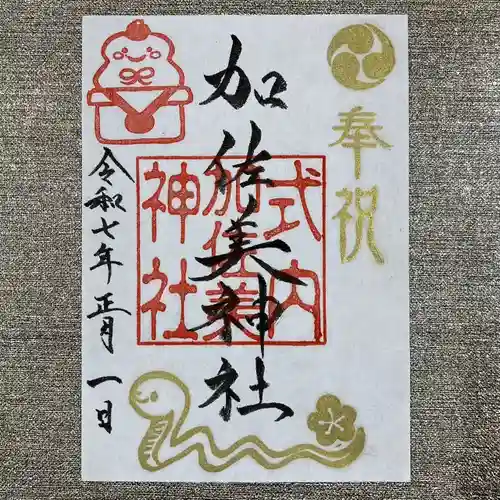 奉祝
加佐美神社
式内
加佐美
神社
令和七年 正月 一日